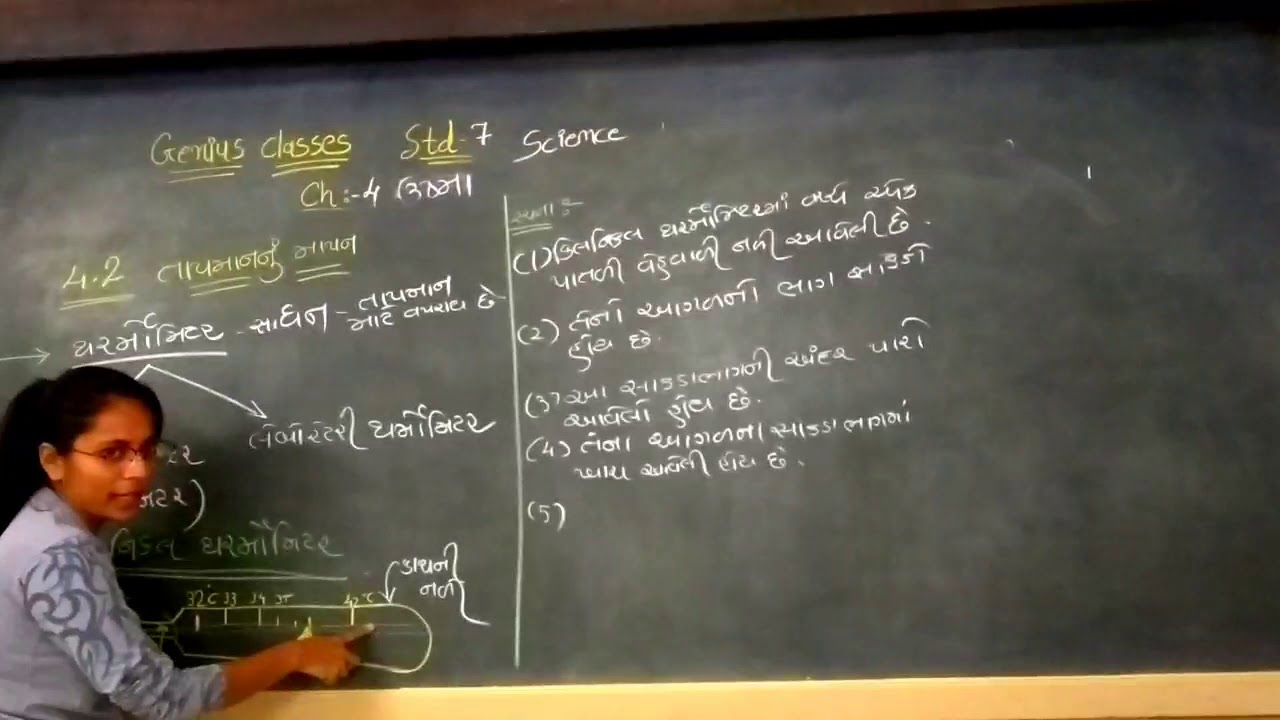 Genius classes Std-7 Science
Ch:-4 ઉષ્મા
4.2 તાપમાનનું માપન
થરમૉમિટર - સાધન - તાપમાન
માટે વપરાય છે
લેબોરેટરી થર્મોમિટર
ટર
મિટર)
નિકલ થરમૉમિટર
કાચની
નળી
32°C 33 34 35 42°C
રચના:-
(1) ક્લિનિકલ થરમૉમિટરમાં વચ્ચે એક
પાતળી વેહવાળી નળી આવેલી છે.
(2) તેનો આગળનો ભાગ સાકડો
હોય છે.
(3) આ સાકડાભાગની અંદર પારો
આવેલો હોય છે.
(4) તેના આગળના સાકડા ભાગમાં
ખાચ આવેલી હોય છે.
(5)